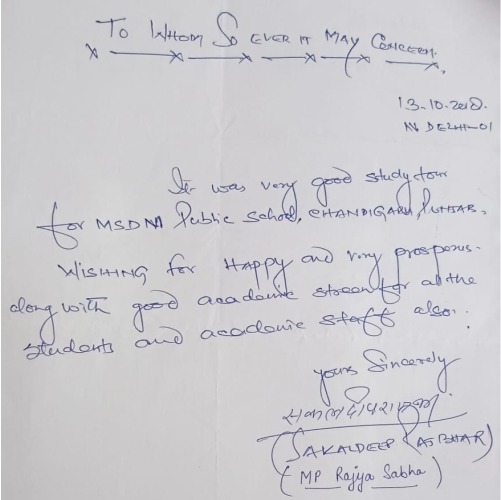 To Whom So ever it May Concern.
x — x — x — x — x — x.
13-10-2018.
N DELHI-01
It was very good study tour
for MSDNM Public School, CHANDIGARH, PUNJAB.
WISHING for HAPPY and very prosperus.
along with good academic stream for all the
students and academic staff also.
yours Sincerely
(SAKALDEEP RAJBHAR)
(MP Rajya Sabha)